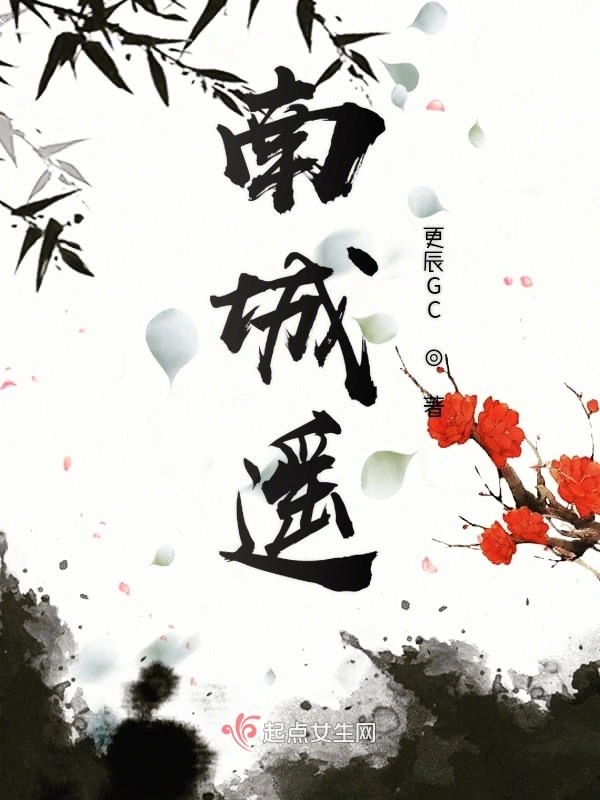 南城遥
更辰GC ◎ 著
起点女生网